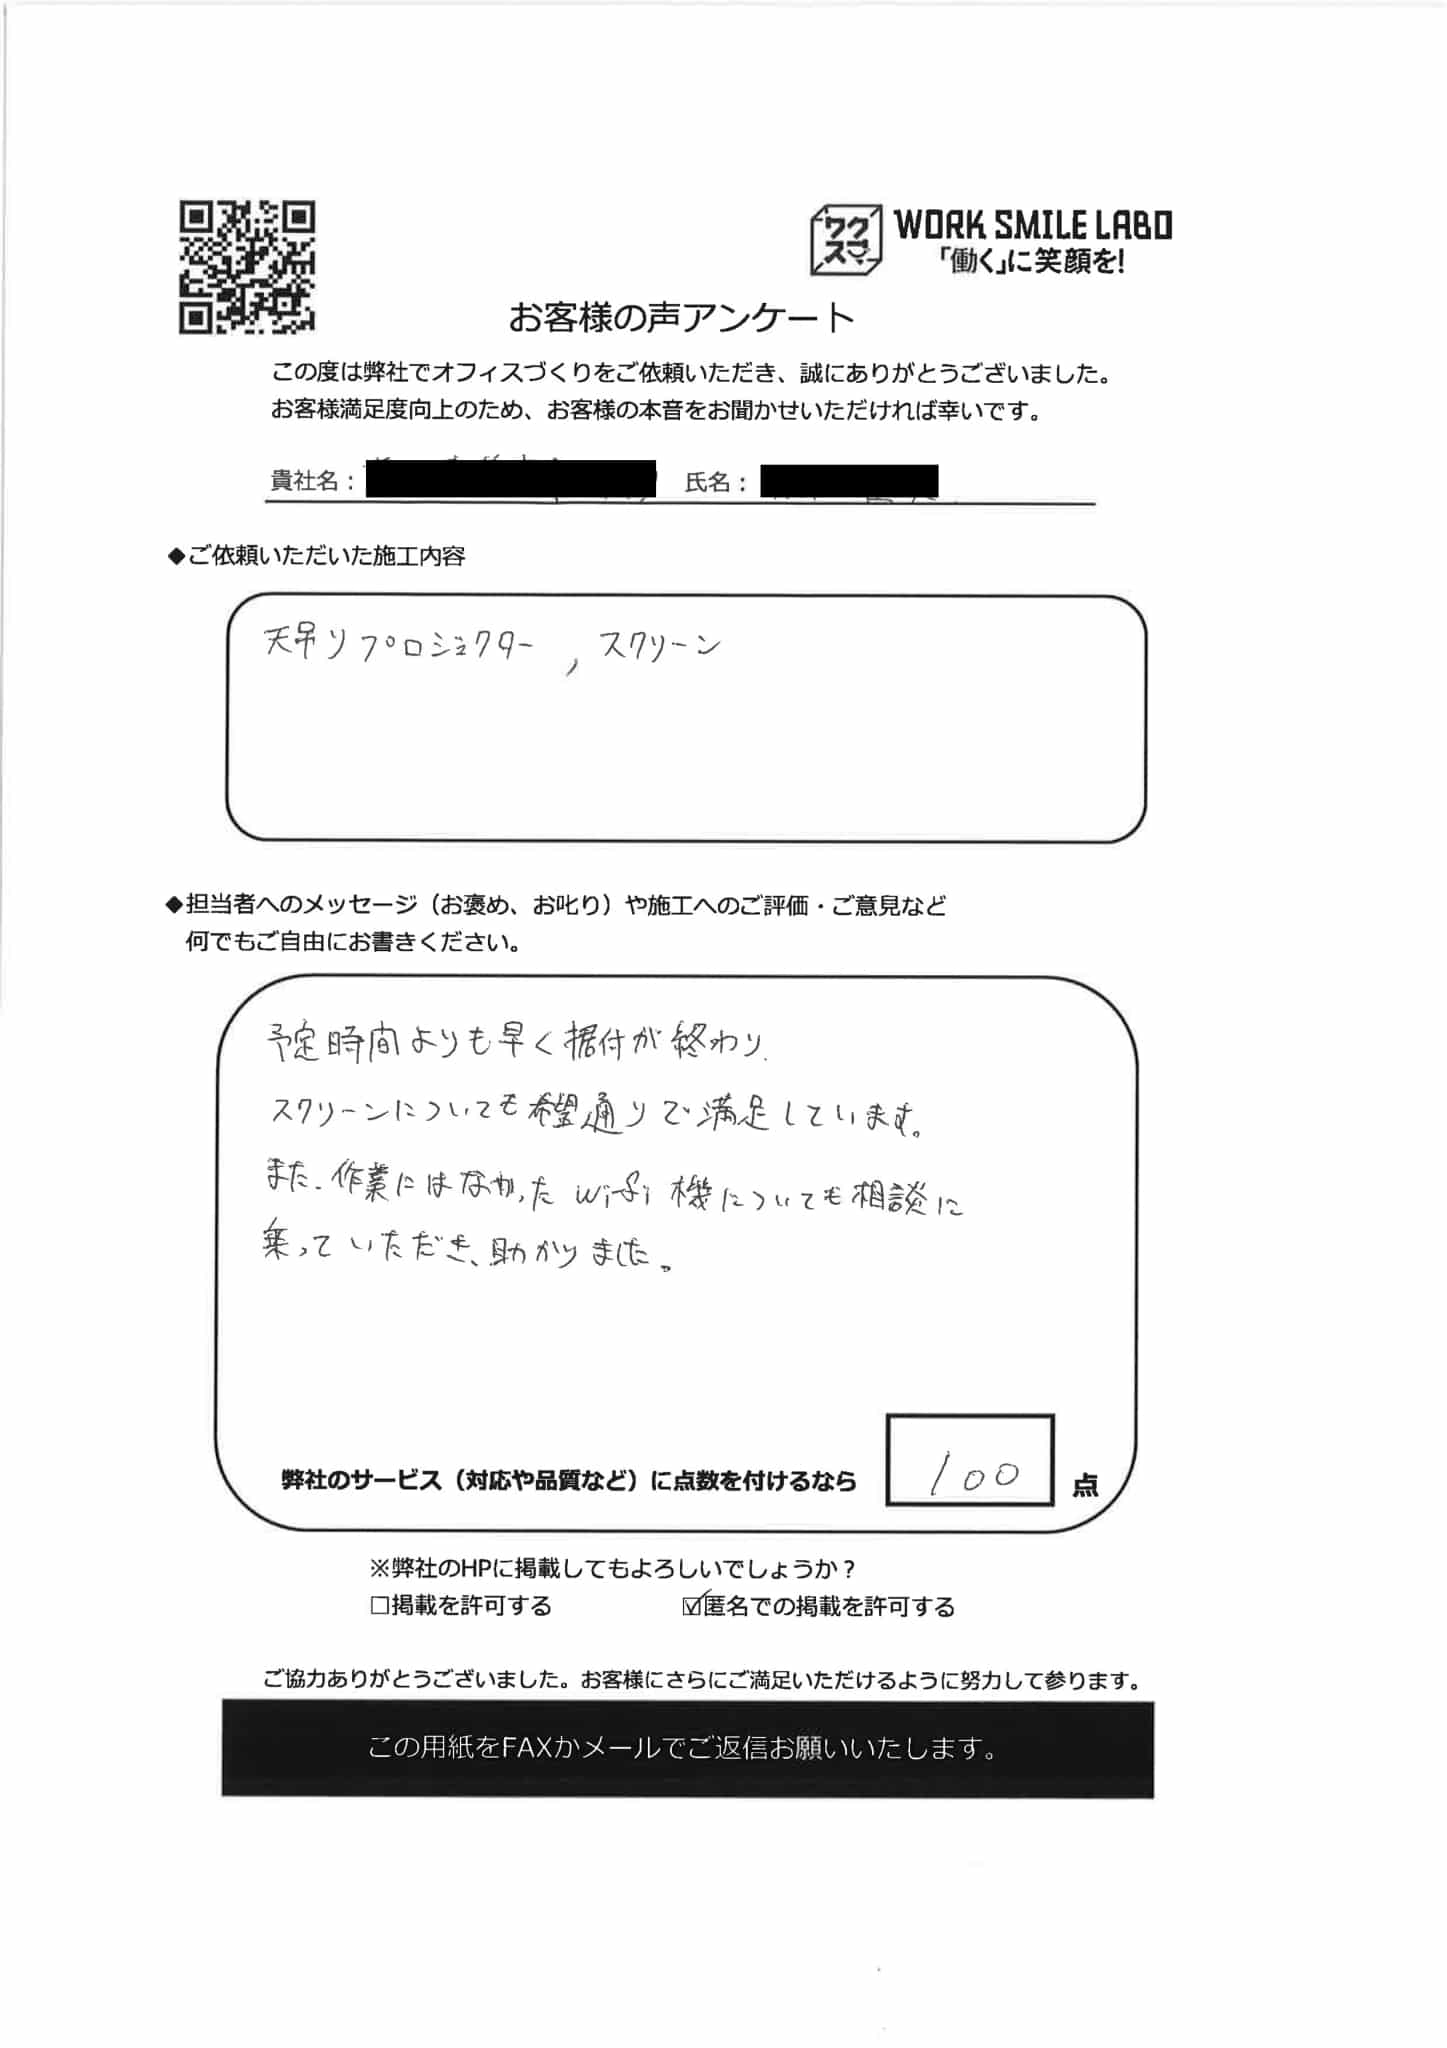 ワクスマ
WORK SMILE LABO
「働く」に笑顔を!
お客様の声アンケート
この度は弊社でオフィスづくりをご依頼いただき、誠にありがとうございました。
お客様満足度向上のため、お客様の本音をお聞かせいただければ幸いです。
貴社名： 氏名：
◆ご依頼いただいた施工内容
天吊りプロジェクター , スクリーン
◆担当者へのメッセージ（お褒め、お叱り）や施工へのご評価・ご意見など
何でもご自由にお書きください。
予定時間よりも早く据付が終わり、
スクリーンについても希望通りで満足しています。
また、作業にはなかった wifi 機についても相談に
乗っていただき、助かりました。
弊社のサービス（対応や品質など）に点数を付けるなら 100 点
※弊社のHPに掲載してもよろしいでしょうか？
□掲載を許可する ☑匿名での掲載を許可する
ご協力ありがとうございました。お客様にさらにご満足いただけるように努力して参ります。
この用紙をFAXかメールでご返信お願いいたします。